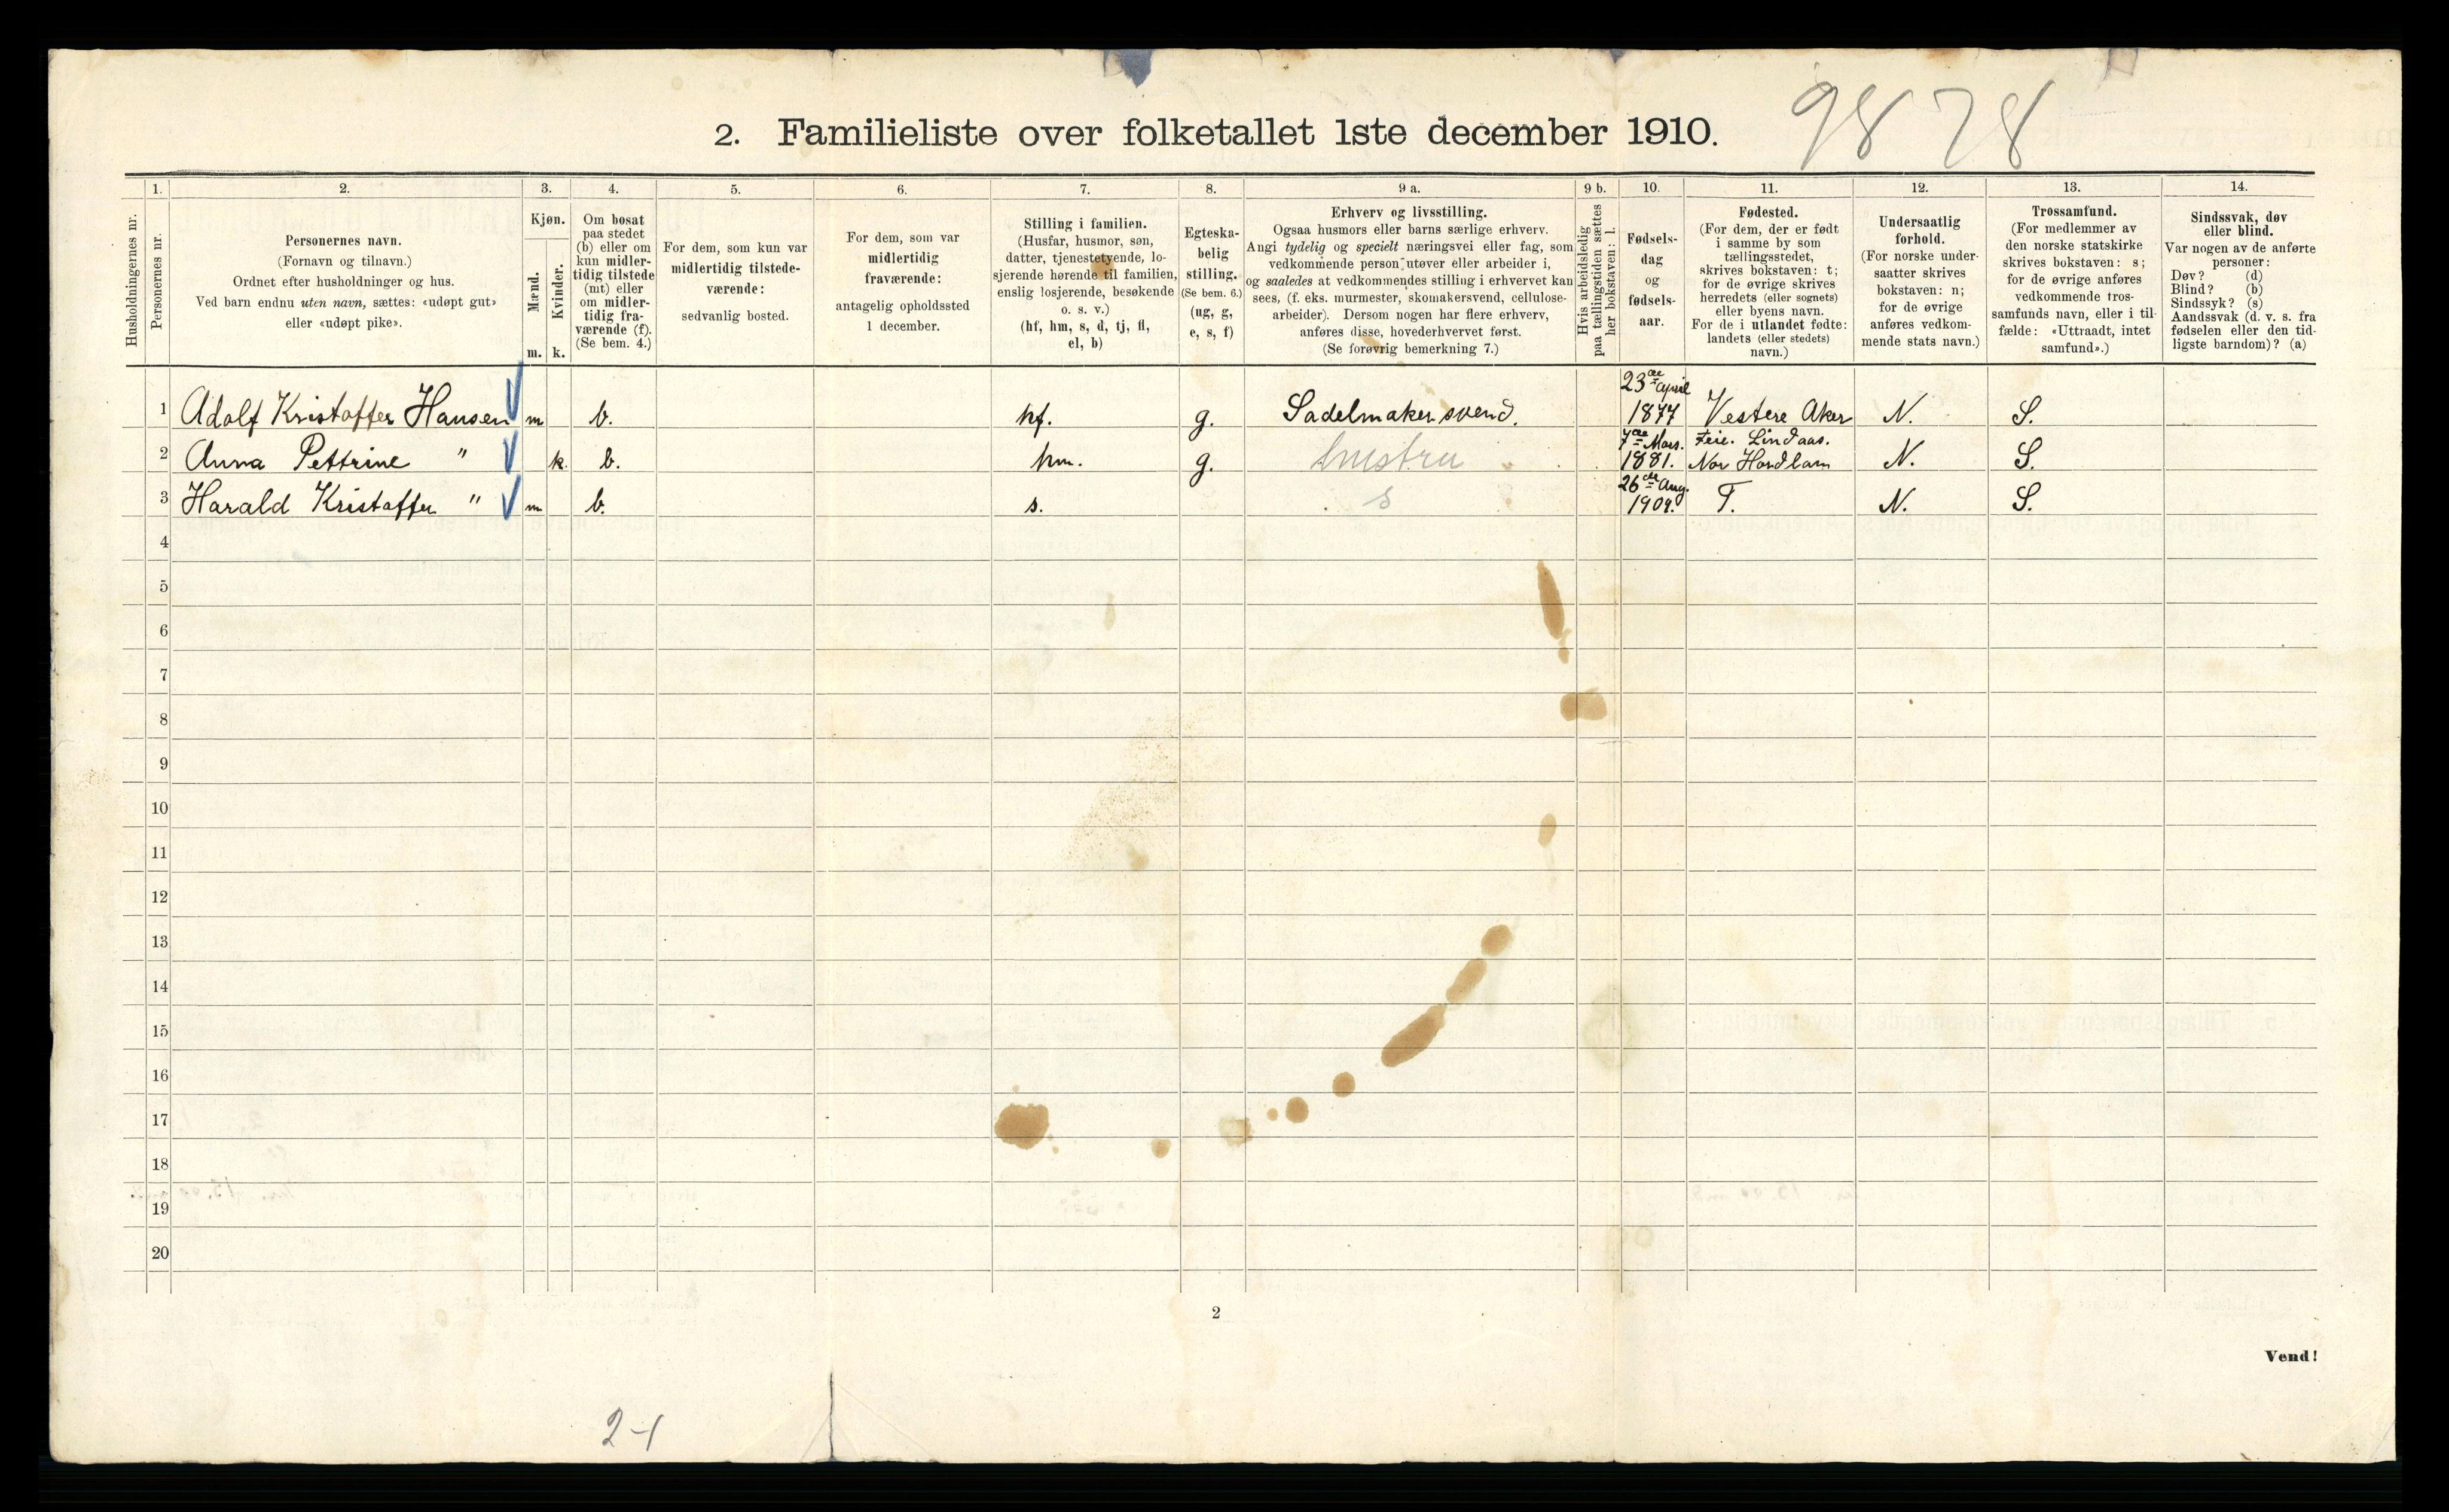 9878
2. Familieliste over folketallet 1ste december 1910.
1. 2. 3. 4. 5. 6. 7. 8. 9 a. 9 b. 10. 11. 12. 13. 14.
Husholdningernes nr.
Personernes nr.
Personernes navn.
(Fornavn og tilnavn.)
Ordnet efter husholdninger og hus.
Ved barn endnu uten navn, sættes: «udøpt gut»
eller «udøpt pike».
Kjøn.
Mænd.
m.
Kvinder.
k.
Om bosat
paa stedet
(b) eller om
kun midler-
tidig tilstede
(mt) eller
om midler-
tidig fra-
værende (f).
(Se bem. 4.)
For dem, som kun var
midlertidig tilstede-
værende:
sedvanlig bosted.
For dem, som var
midlertidig
fraværende:
antagelig opholdssted
1 december.
Stilling i familien.
(Husfar, husmor, søn,
datter, tjenestetyende, lo-
sjerende hørende til familien,
enslig losjerende, besøkende
o. s. v.)
(hf, hm, s, d, tj, fl,
el, b)
Egteska-
belig
stilling.
(Se bem. 6.)
(ug, g,
e, s, f)
Erhverv og livsstilling.
Ogsaa husmors eller barns særlige erhverv.
Angi tydelig og specielt næringsvei eller fag, som
vedkommende person utøver eller arbeider i,
og saaledes at vedkommendes stilling i erhvervet kan
sees, (f. eks. murmester, skomakersvend, cellulose-
arbeider). Dersom nogen har flere erhverv,
anføres disse, hovederhvervet først.
(Se forøvrig bemerkning 7.)
Hvis arbeidsledig
paa tællingstiden sættes
her bokstaven: l.
Fødsels-
dag
og
fødsels-
aar.
Fødested.
(For dem, der er født
i samme by som
tællingsstedet,
skrives bokstaven: t;
for de øvrige skrives
herredets (eller sognets)
eller byens navn.
For de i utlandet fødte:
landets (eller stedets)
navn.)
Undersaatlig
forhold.
(For norske under-
saatter skrives
bokstaven: n;
for de øvrige
anføres vedkom-
mende stats navn.)
Trossamfund.
(For medlemmer av
den norske statskirke
skrives bokstaven: s;
for de øvrige anføres
vedkommende tros-
samfunds navn, eller i til-
fælde: «Uttraadt, intet
samfund».)
Sindssvak, døv
eller blind.
Var nogen av de anførte
personer:
Døv? (d)
Blind? (b)
Sindssyk? (s)
Aandssvak (d. v. s. fra
fødselen eller den tid-
ligste barndom)? (a)
1 Adolf Kristoffer Hansen m b. hf. g. Sadelmakersvend. 23de April 1877 Vestere Aker N. S.
2 Anna Pettrine " k. b. hm. g. hustru 7de Mars. 1881. Lindaas. Nor Hordlam N. S.
3 Harald Kristoffer " m b. s. s 26de Aug. 1909. T. N. S.
4
5
6
7
8
9
10
11
12
13
14
15
16
17
18
19
20
2
Vend!
2-1